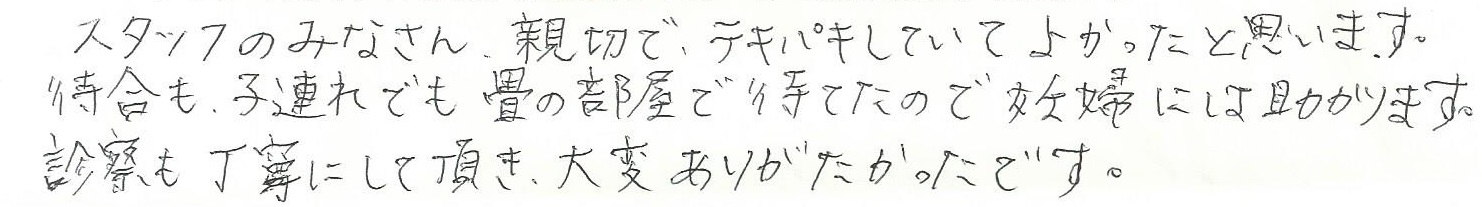 スタッフのみなさん、親切で、テキパキしていてよかったと思います。
待合も、子連れでも畳の部屋で待てたので妊婦には助かります。
診察も丁寧にして頂き、大変ありがたかったです。